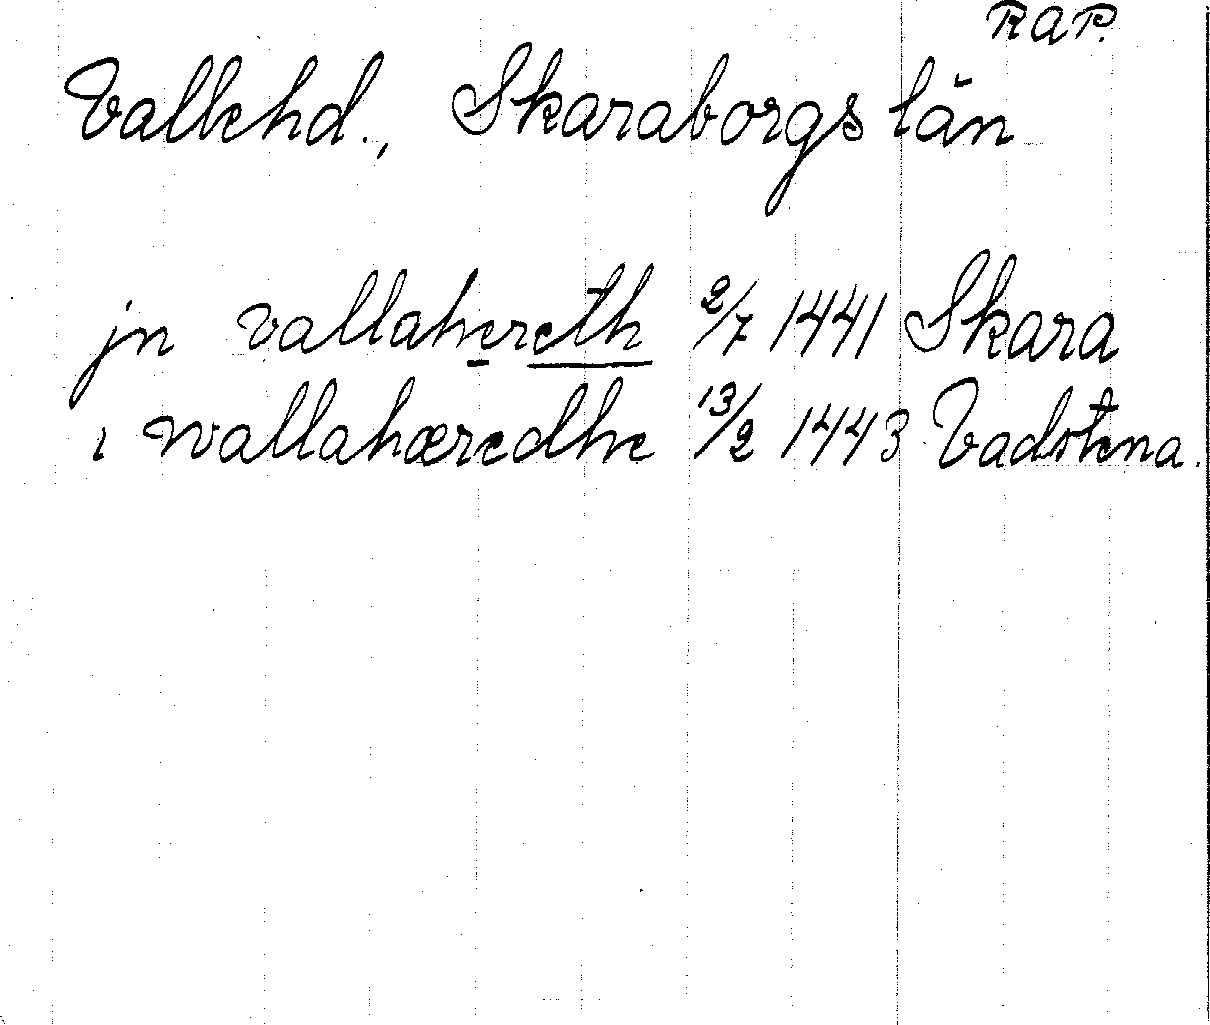 RAP.
Vallehd., Skaraborgs län
jn vallahereth 2/7 1441 Skara
i wallahæredhe 13/2 1443 Vadstena.